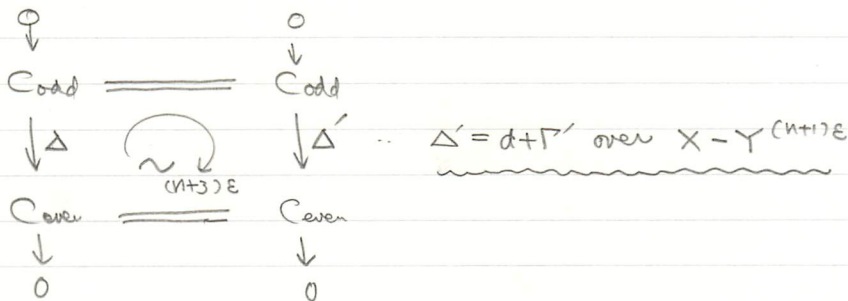 0 0
↓ ↓
Codd ═══ Codd
↓Δ ~(n+3)ε ↓Δ′ ‥ Δ′ = d+Γ′ over X − Y^(n+1)ε
Ceven ═══ Ceven
↓ ↓
0 0